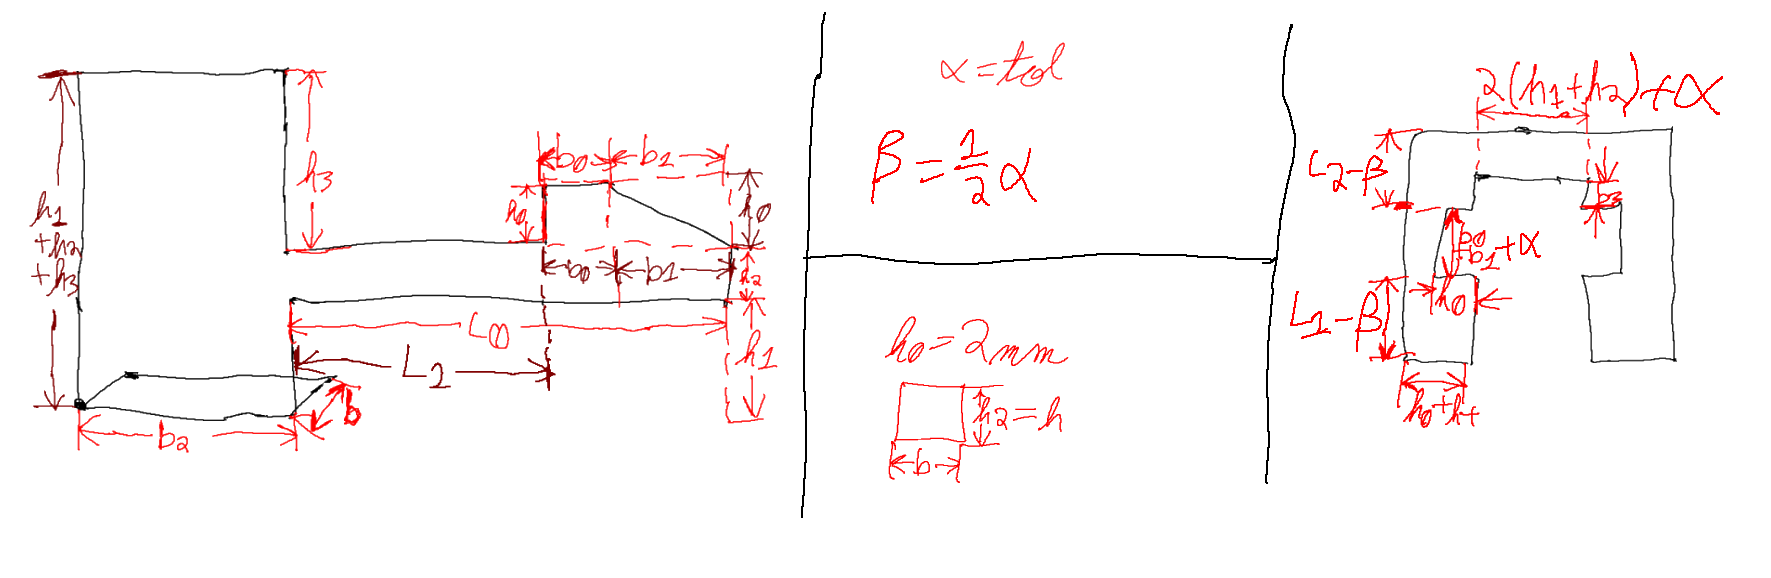 h1
+h2
+h3
h3
b0
b1
h0
h0
b0
b1
h2
L0
L2
h1
b2
b
α = tol
β = 1/2 α
h0 = 2mm
h2 = h
b
2(h1+h2)+α
L2-β
b0
+b1+α
h0
L1-β